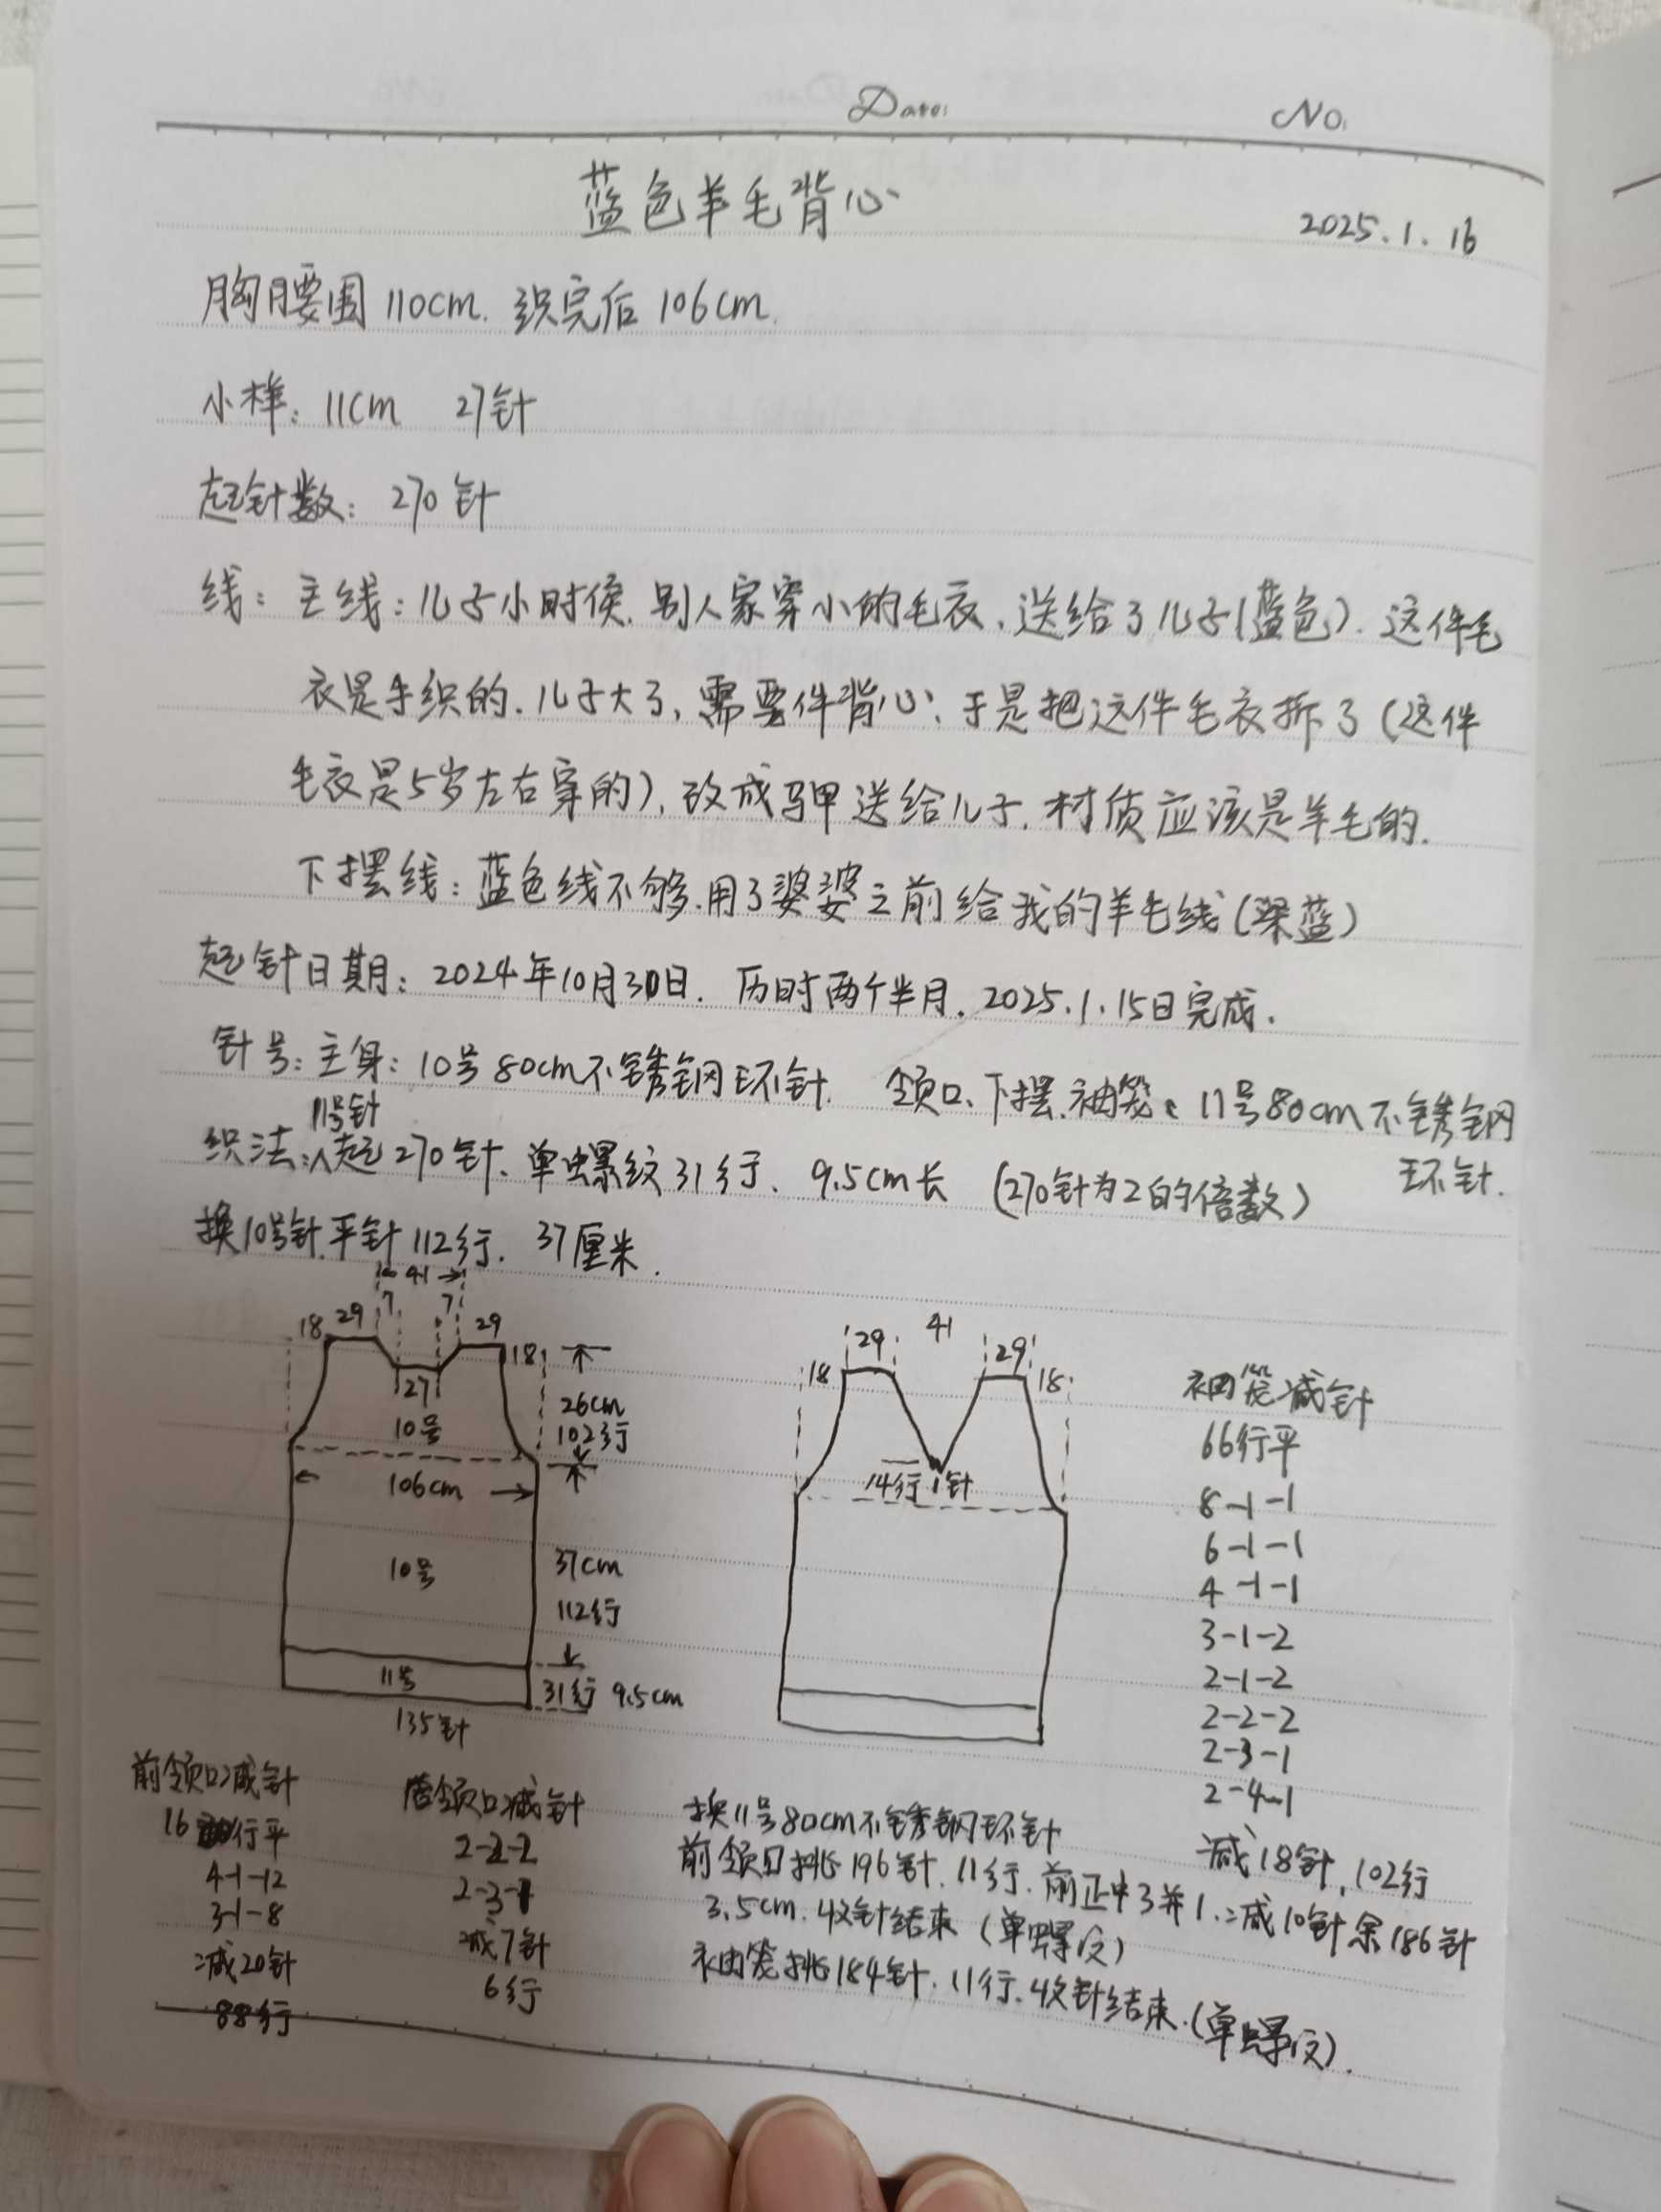 Date:
No:
蓝色羊毛背心
2025.1.16
胸腰围110cm. 织完后106cm.
小样: 11cm 27针
起针数: 270针
线: 主线: 儿子小时候. 别人家穿小的毛衣, 送给了儿子(蓝色). 这件毛
衣是手织的. 儿子大了, 需要件背心, 于是把这件毛衣拆了(这件
毛衣是5岁左右穿的), 改成马甲送给儿子. 材质应该是羊毛的.
下摆线: 蓝色线不够. 用了婆婆之前给我的羊毛线(深蓝)
起针日期: 2024年10月30日. 历时两个半月. 2025.1.15日完成.
针号: 主身: 10号80cm不锈钢环针. 领口、下摆、袖笼: 11号80cm不锈钢
环针.
11号针
织法: 起270针. 单螺纹31行. 9.5cm长 (270针为2的倍数)
换10号针. 平针112行. 37厘米.
41
18 29 7 7 29 18
27
10号
26cm
102行
106cm
10号
37cm
112行
11号
31行 9.5cm
135针
41
18 29 29 18
14行 1针
袖笼减针
66行平
8-1-1
6-1-1
4-1-1
3-1-2
2-1-2
2-2-2
2-3-1
2-4-1
减18针, 102行
前领口减针
16行平
4-1-12
3-1-8
减20针
88行
后领口减针
2-2-2
2-3-1
减7针
6行
换11号80cm不锈钢环针
前领口挑196针. 11行. 前正中3并1. 减10针余186针
3.5cm. 收针结束 (单螺纹)
袖笼挑184针. 11行. 收针结束. (单螺纹).